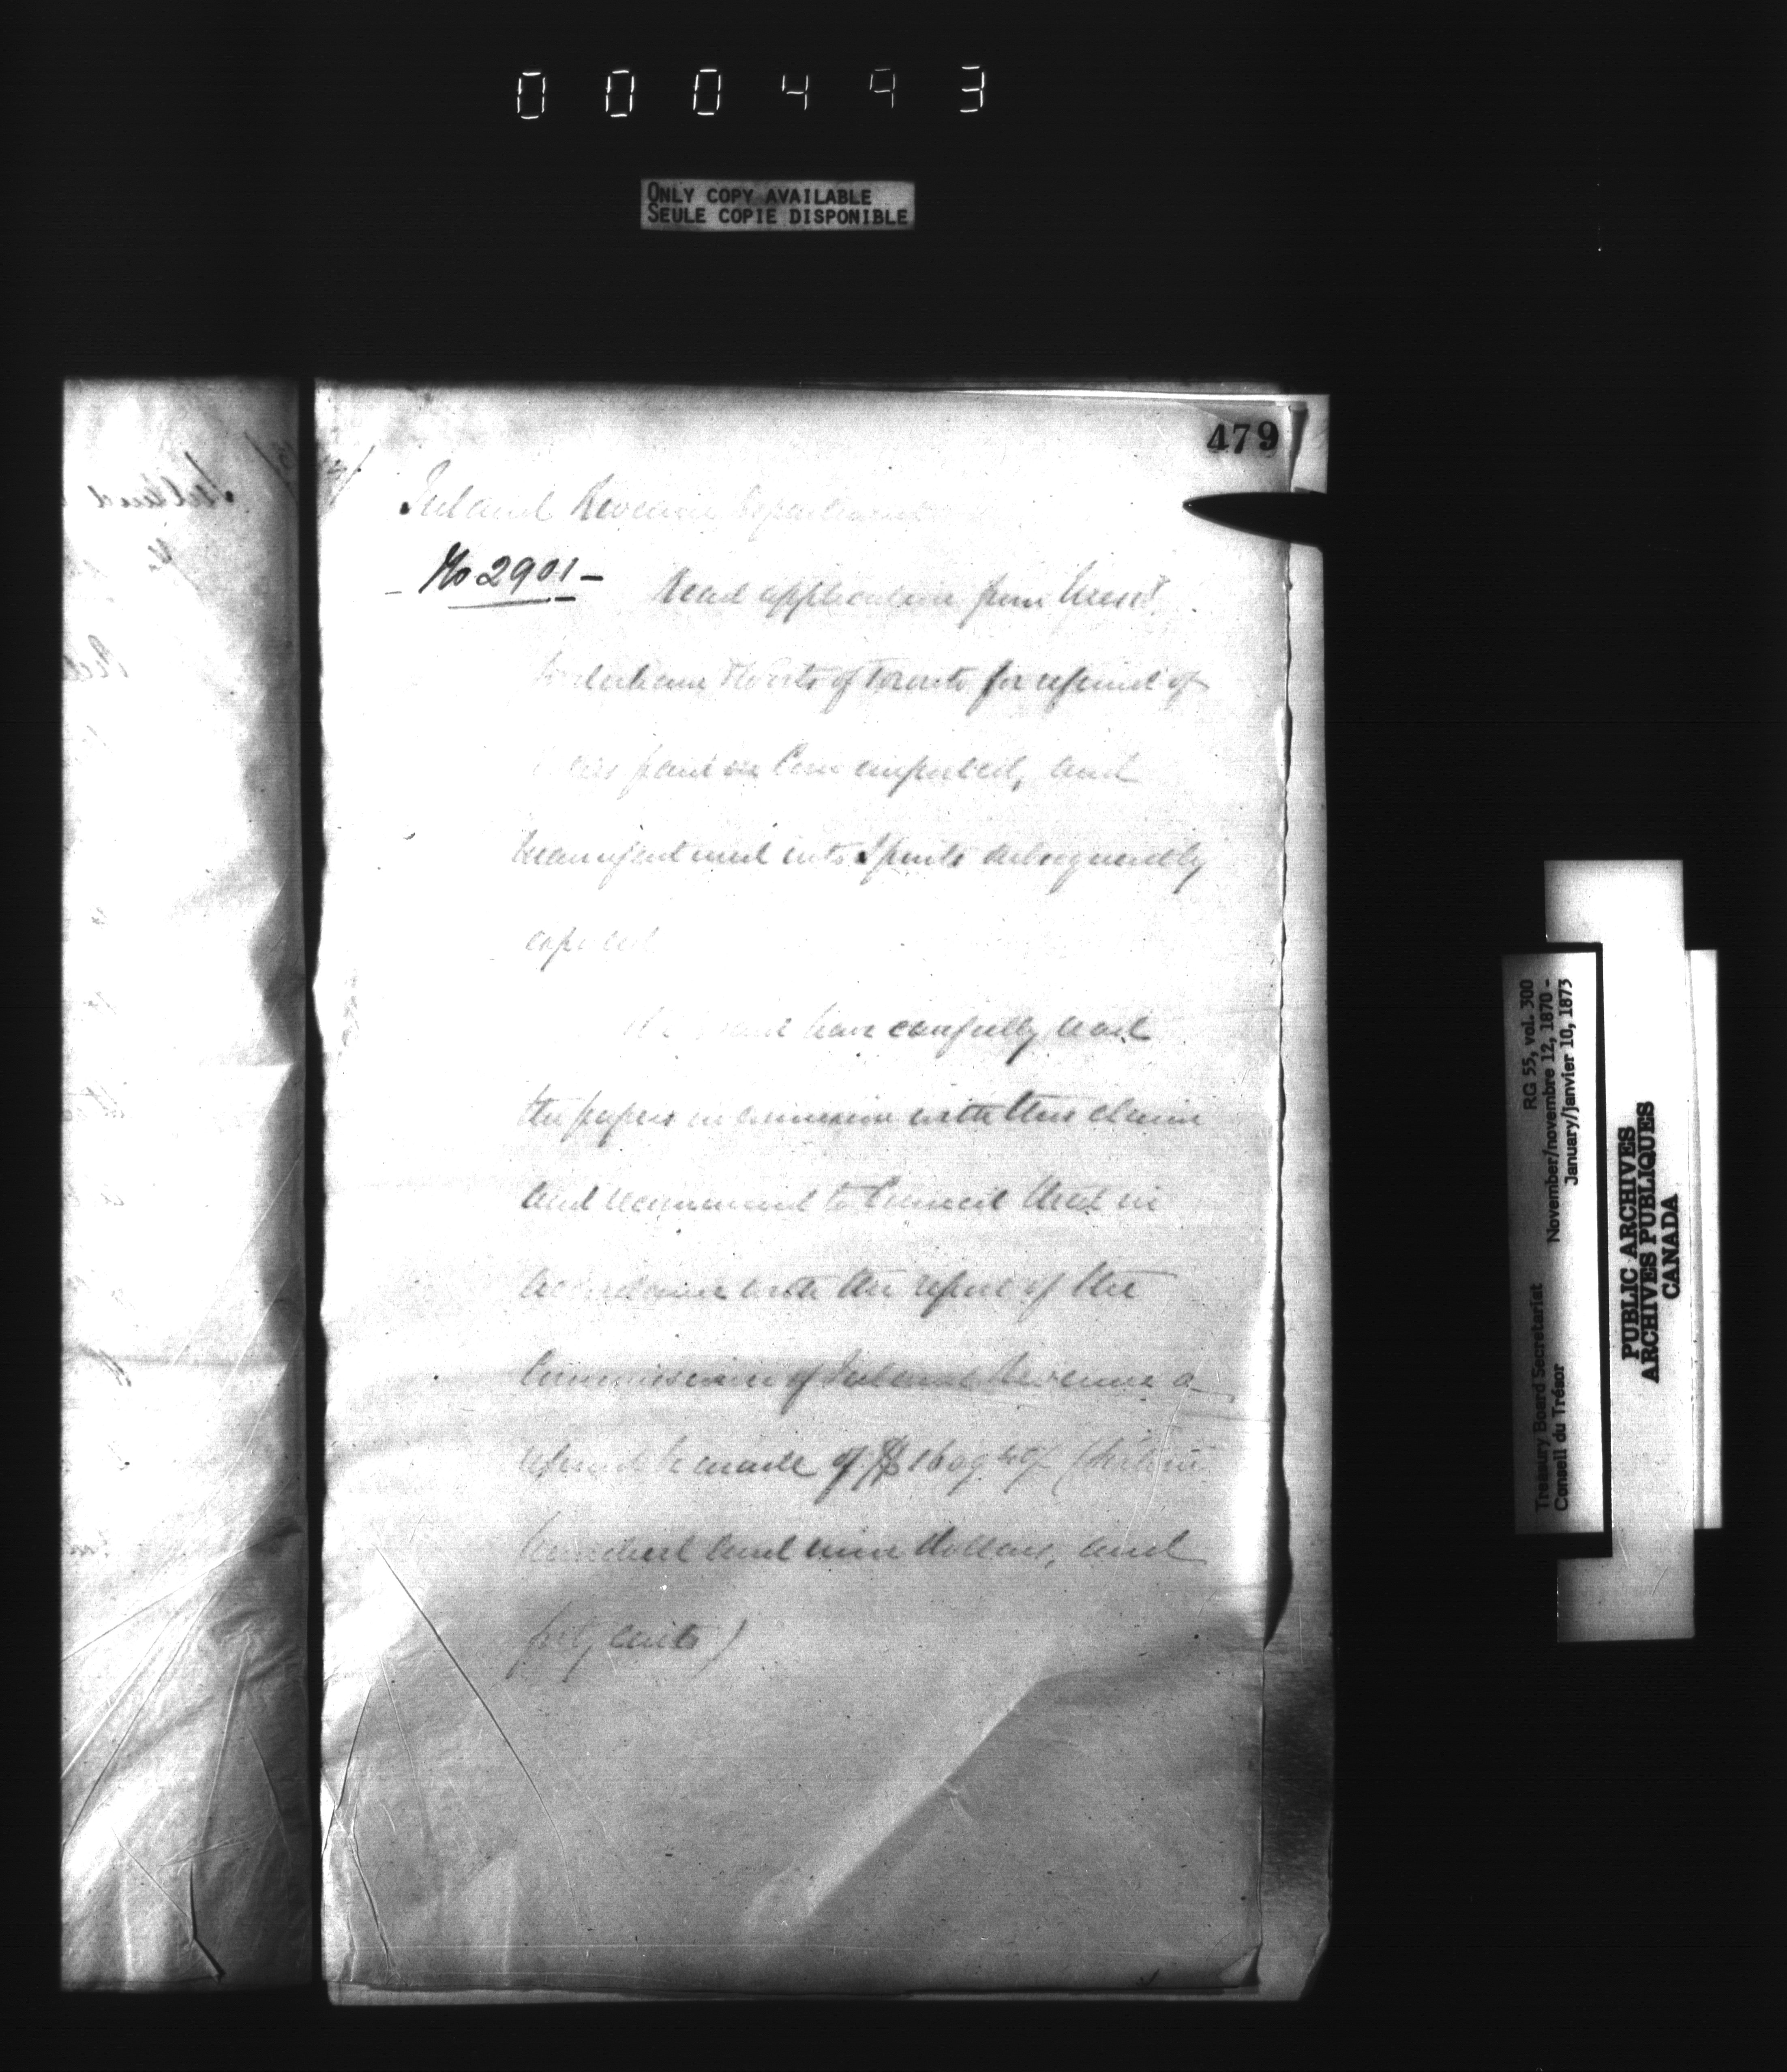 000493
ONLY COPY AVAILABLE
SEULE COPIE DISPONIBLE
479
Inland Revenue Department
No 2901
Read application from Messrs
& Worts of Toronto for refund of
paid on Corn imported, and
manufactured into Spirits subsequently
exported
The Board have carefully read
the papers in connexion with this claim
and recommend to Council that in
accordance with the report of the
Commissioner of Inland Revenue a
refund be made of $1609
hundred and nine dollars, and
cents)
RG 55, vol. 300
November/novembre 12, 1870 -
January/janvier 10, 1873
Treasury Board Secretariat
Conseil du Trésor
PUBLIC ARCHIVES
ARCHIVES PUBLIQUES
CANADA